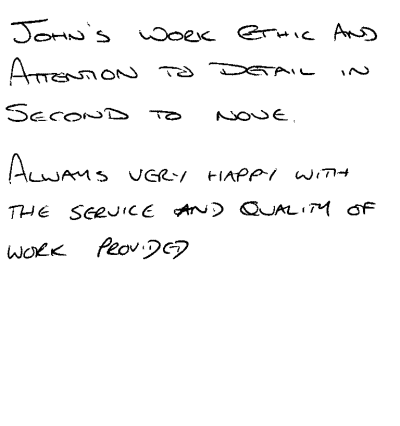 JOHN'S WORK ETHIC AND
ATTENTION TO DETAIL IN
SECOND TO NONE.
ALWAYS VERY HAPPY WITH
THE SERVICE AND QUALITY OF
WORK PROVIDED